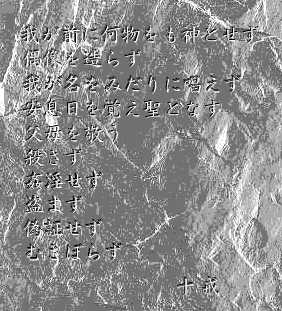 我が前に何物をも神とせず
偶像を造らず
我が名をみだりに唱えず
安息日を覚え聖となす
父母を敬う
殺さず
姦淫せず
盗まず
偽証せず
むさぼらず
十戒